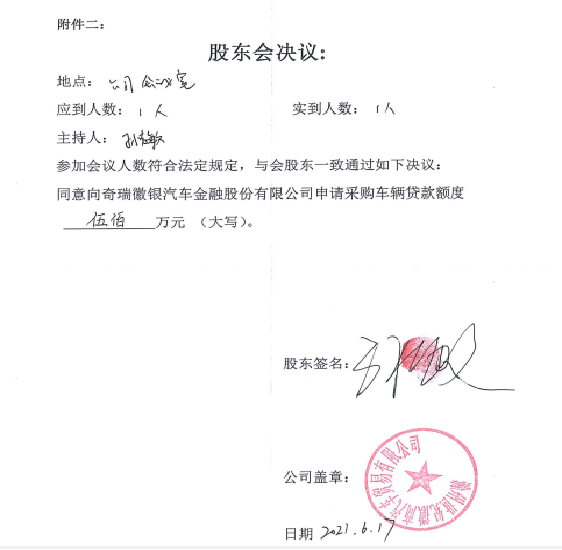 附件二：
股东会决议：
地点：公司会议室
应到人数：1人 实到人数：1人
主持人：
参加会议人数符合法定规定，与会股东一致通过如下决议：
同意向奇瑞徽银汽车金融股份有限公司申请采购车辆贷款额度
伍佰 万元 （大写）。
股东签名：
公司盖章：
汽车贸易有限公司
日期 2021.6.17